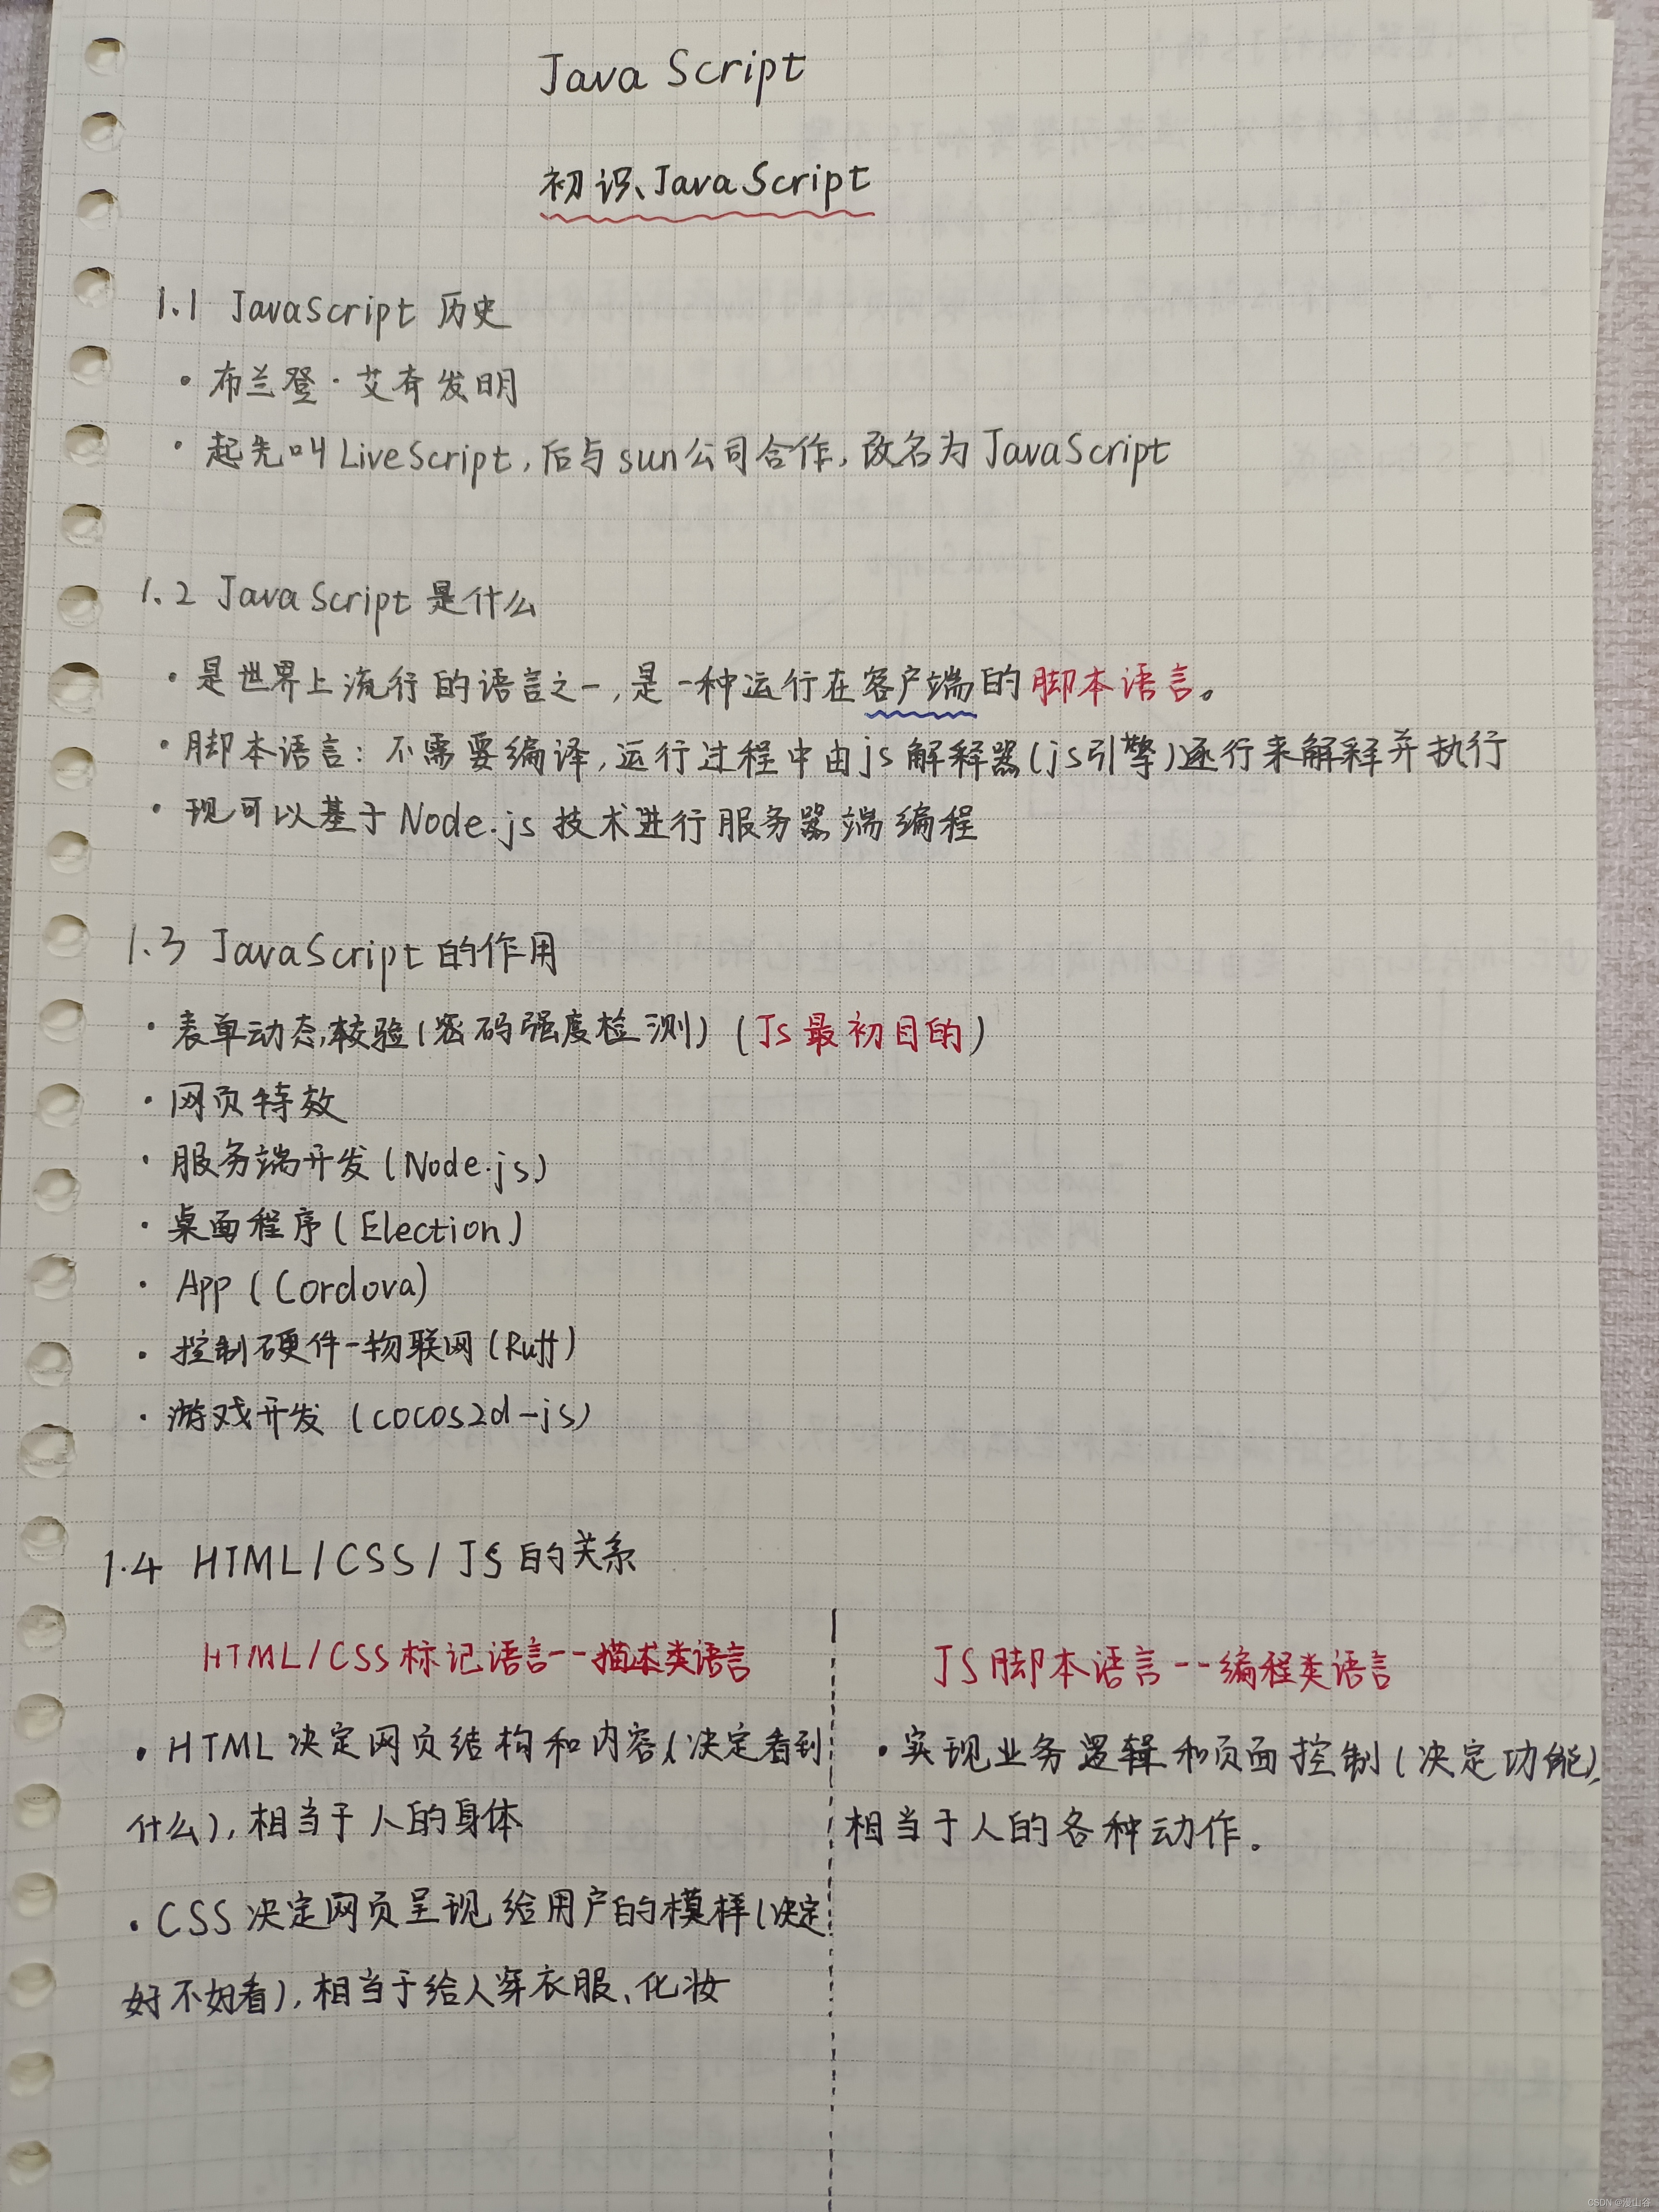 Java Script
初识JavaScript
1.1 JavaScript 历史
· 布兰登·艾奇发明
· 起先叫LiveScript,后与sun公司合作,改名为JavaScript
1.2 JavaScript是什么
· 是世界上流行的语言之一,是一种运行在客户端的脚本语言。
· 脚本语言:不需要编译,运行过程中由js解释器(js引擎)逐行来解释并执行
· 现可以基于Node.js技术进行服务器端编程
1.3 JavaScript的作用
· 表单动态校验(密码强度检测)(JS最初目的)
· 网页特效
· 服务端开发(Node.js)
· 桌面程序(Election)
· App(Cordova)
· 控制硬件-物联网(Ruff)
· 游戏开发(cocos2d-js)
1.4 HTML/CSS/JS的关系
HTML/CSS标记语言--描述类语言
· HTML决定网页结构和内容(决定看到
什么),相当于人的身体
· CSS决定网页呈现给用户的模样(决定
好不好看),相当于给人穿衣服、化妆
JS脚本语言--编程类语言
· 实现业务逻辑和页面控制(决定功能),
相当于人的各种动作。
CSDN @漫山谷